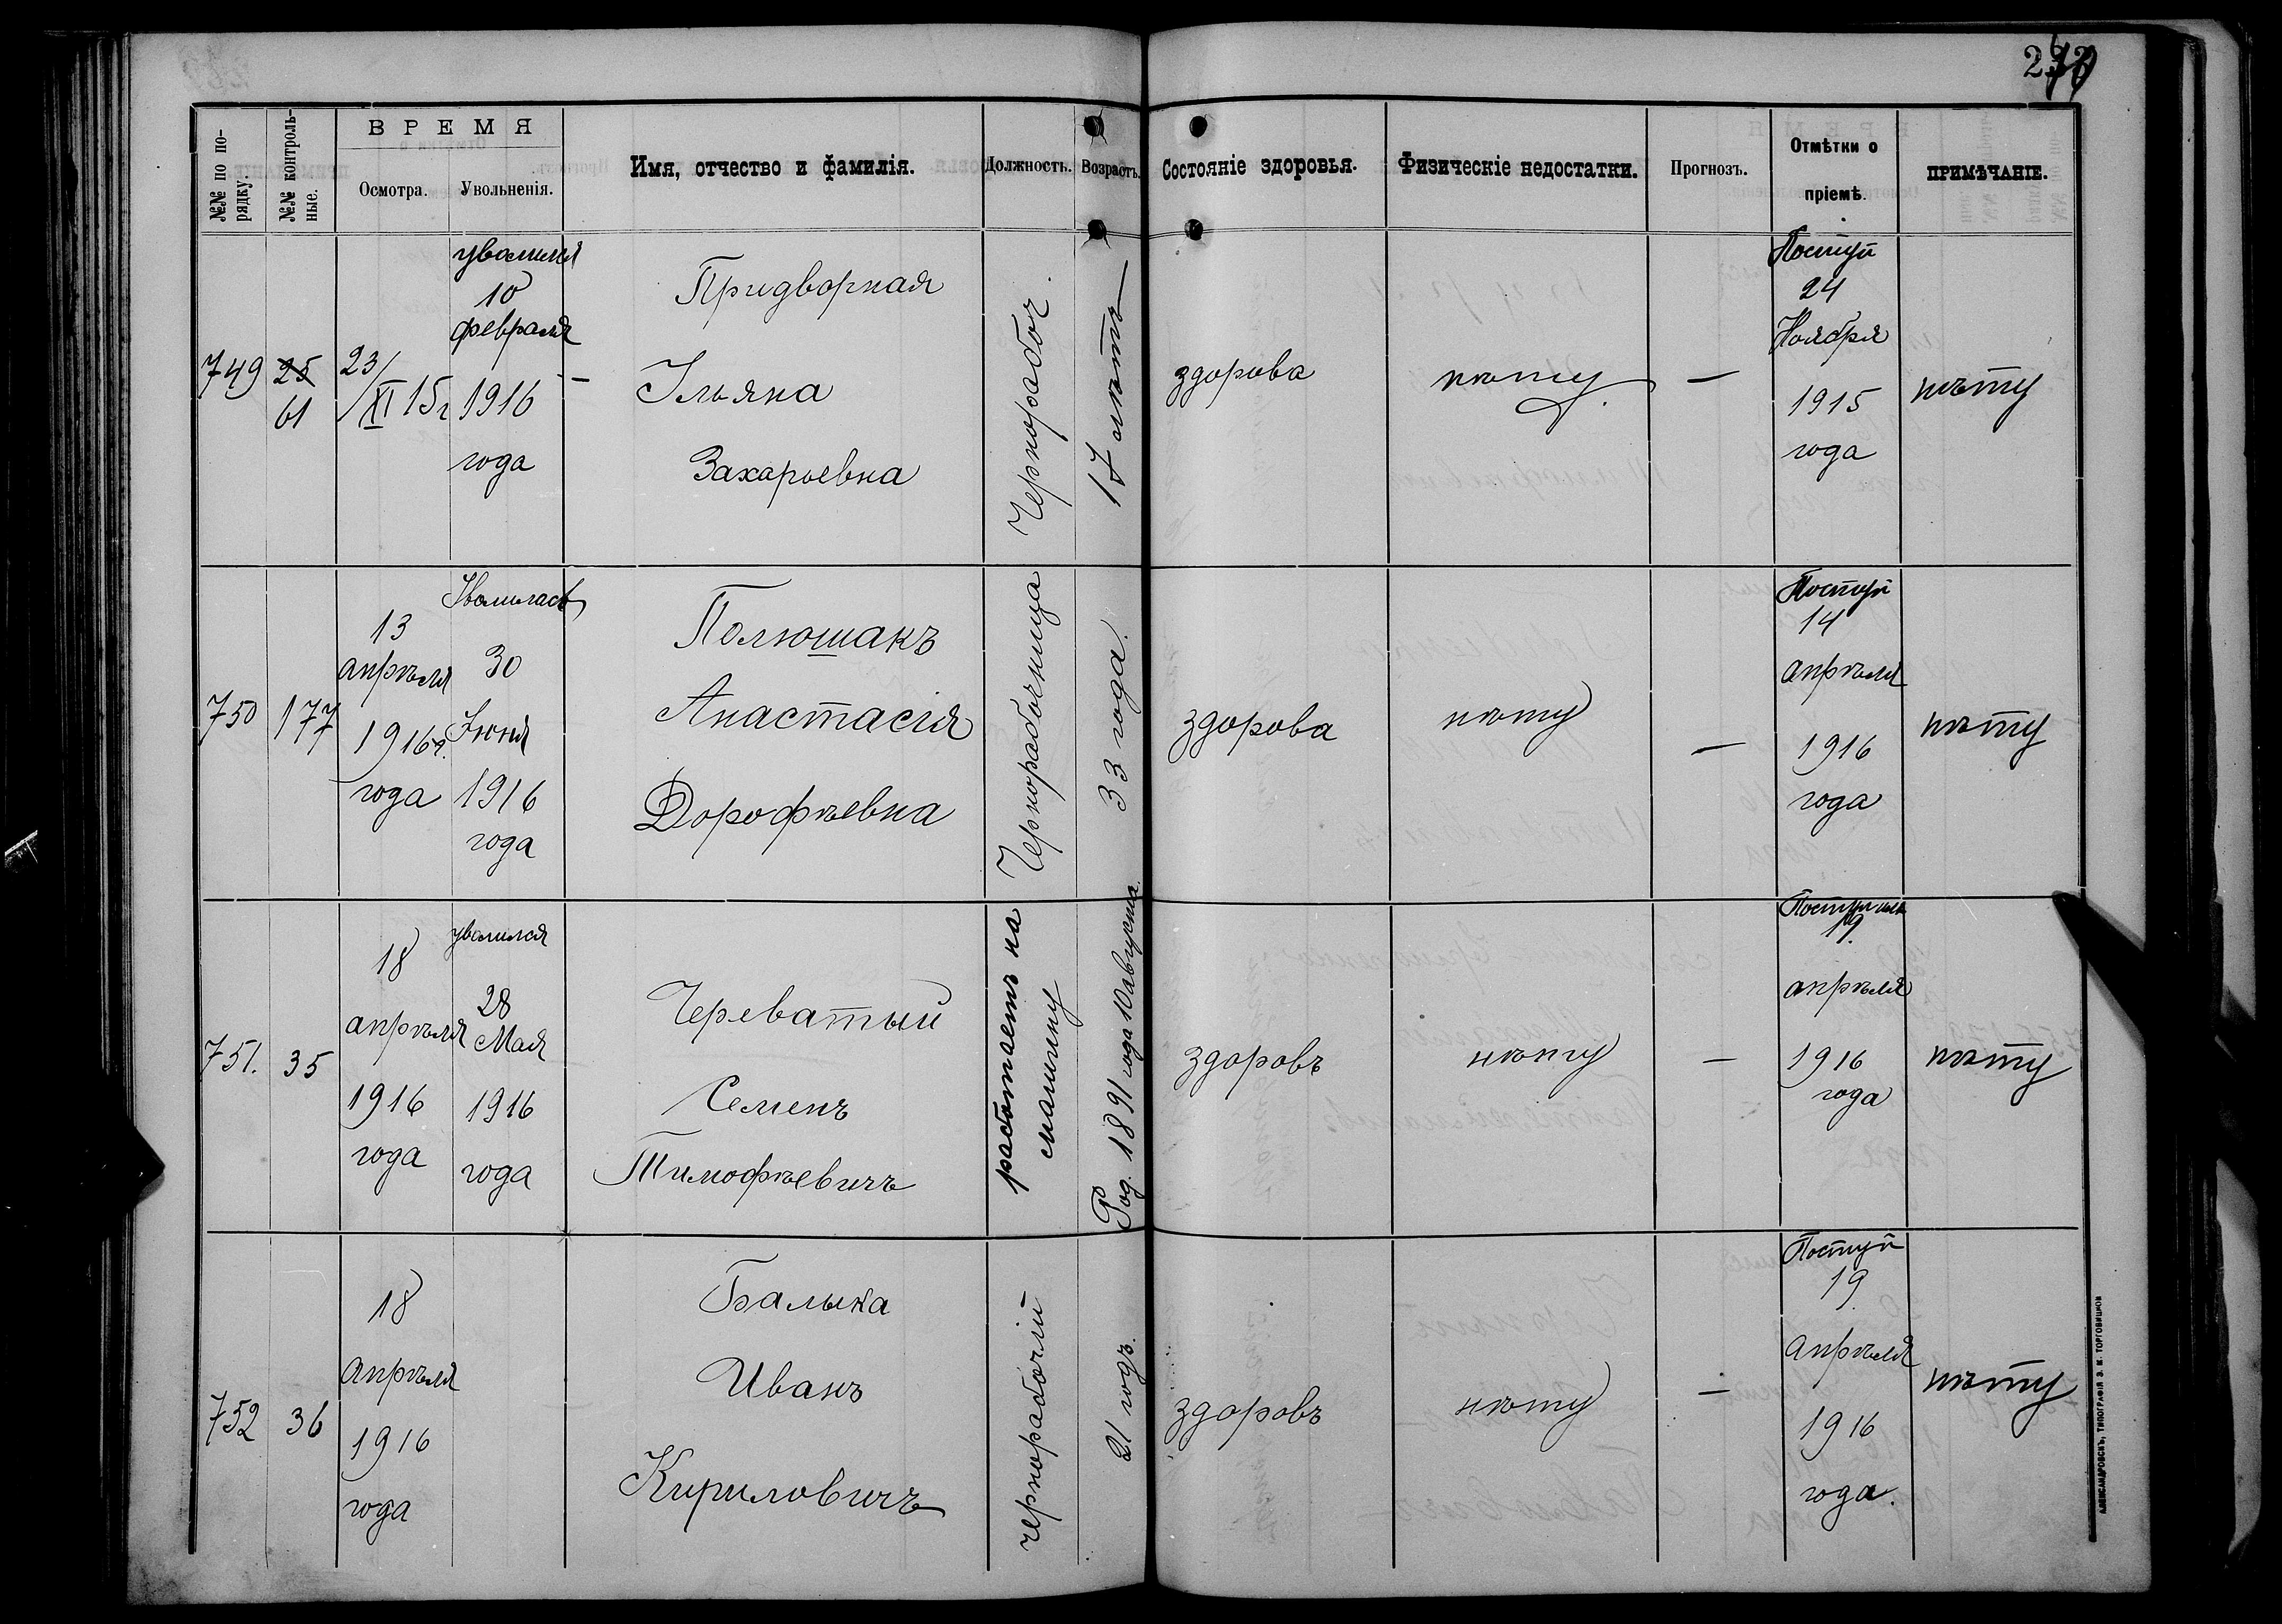 №№ по по-
рядку.
№№ контроль-
ные.
ВРЕМЯ
Осмотра.
Увольненія.
Имя, отчество и фамилія.
Должность.
Возрастъ.
Состояніе здоровья.
Физическіе недостатки.
Прогнозъ.
Отмѣтки о
пріемѣ.
ПРИМѢЧАНІЕ.
749
25
61
23/
XI 15г
уволился
10
февраля
1916
года
Придворная
Ульяна
Захарьевна
Чернорабоч.
17 лѣтъ
здорова
нѣту
—
Поступ
24
Ноября
1915
года
нѣту
750
177
13
апрѣля
1916г.
года
Уволилась
30
Июня
1916
года
Полюшакъ
Анастасія
Дорофѣевна
Чернорабочница
33 года.
здорова
нѣту
—
Поступ
14
апрѣля
1916
года
нѣту
751.
35
18
апрѣля
1916
года
уволился
28
Мая
1916
года
Череватый
Семенъ
Тимофѣевичъ
работаетъ на
машину
Род. 1891 года 10 августа.
здоровъ
нѣту
—
19
апрѣля
1916
года
нѣту
752
36
18
апрѣля
1916
года
Балыка
Иванъ
Кириловичъ
чернорабочій
21 годъ.
здоровъ
нѣту
—
Поступ
19
апрѣля
1916
года.
нѣту
АЛЕКСАНДРОВСКЪ, ТИПОГРАФІЯ З. М. ТОРГОВИЦКОВ